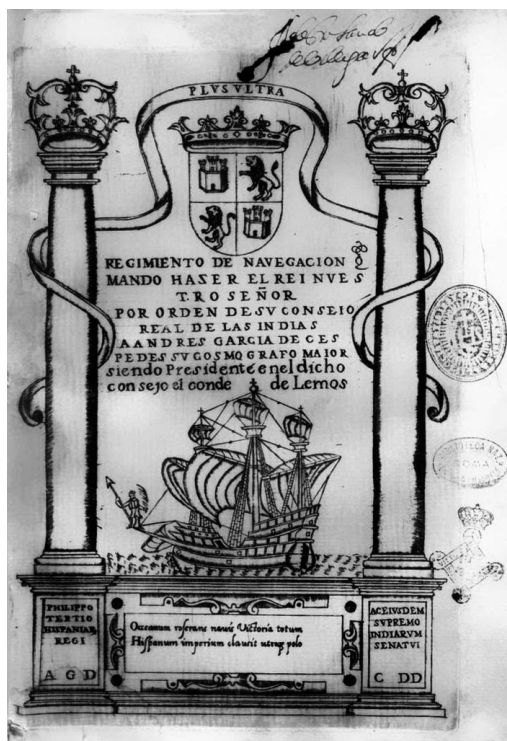 PLVS VLTRA
REGIMIENTO DE NAVEGACION Q
MANDO HASER EL REI NVES
TRO SEÑOR
POR ORDEN DE SV CONSEIO
REAL DE LAS INDIAS
A ANDRES GARCIA DE CES
PEDES SV COSMOGRAFO MAIOR
siendo Presidente en el dicho
consejo el conde de Lemos
PHILIPPO
TERTIO
HISPANIAR
REGI
A G D
Occeanum reserans nauis Victoria totum
Hispanum imperium clausit utroq polo
AC EIVSDEM
SVPREMO
INDIARVM
SENATVI
C DD